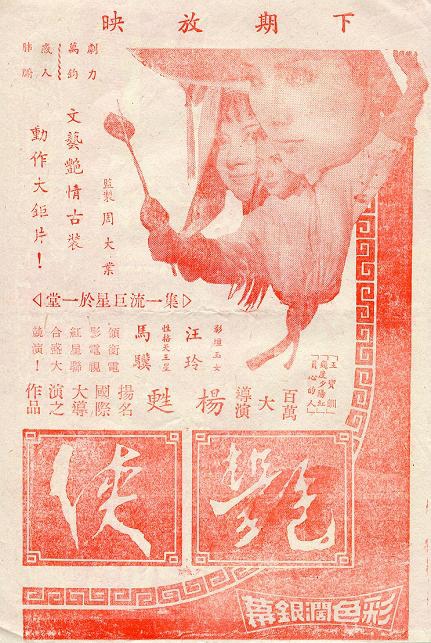 下期放映
劇力
萬鈞
感人
肺腑
文藝艷情古裝
動作大鉅片！
監製周大業
集一流巨星於一堂
「王寶釧」
「幾度夕陽紅」
「負心的人」
百萬
大
導演
楊甦
影壇玉女
汪玲
性格天王星
馬驥
領銜電
影電視
紅星聯
合盛大
競演！
揚名
國際
大導
演之
作品
艷俠
彩色闊銀幕